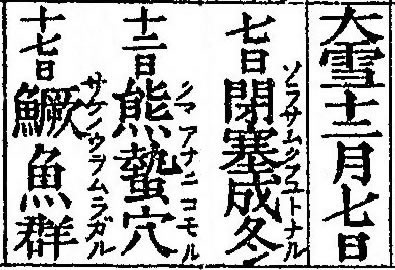 大雪十二月七日
七日閉塞成冬
ソラサムクフユトナル
十二日熊蟄穴
クマアナニコモル
十七日鱖魚群
サケノウヲムラガル